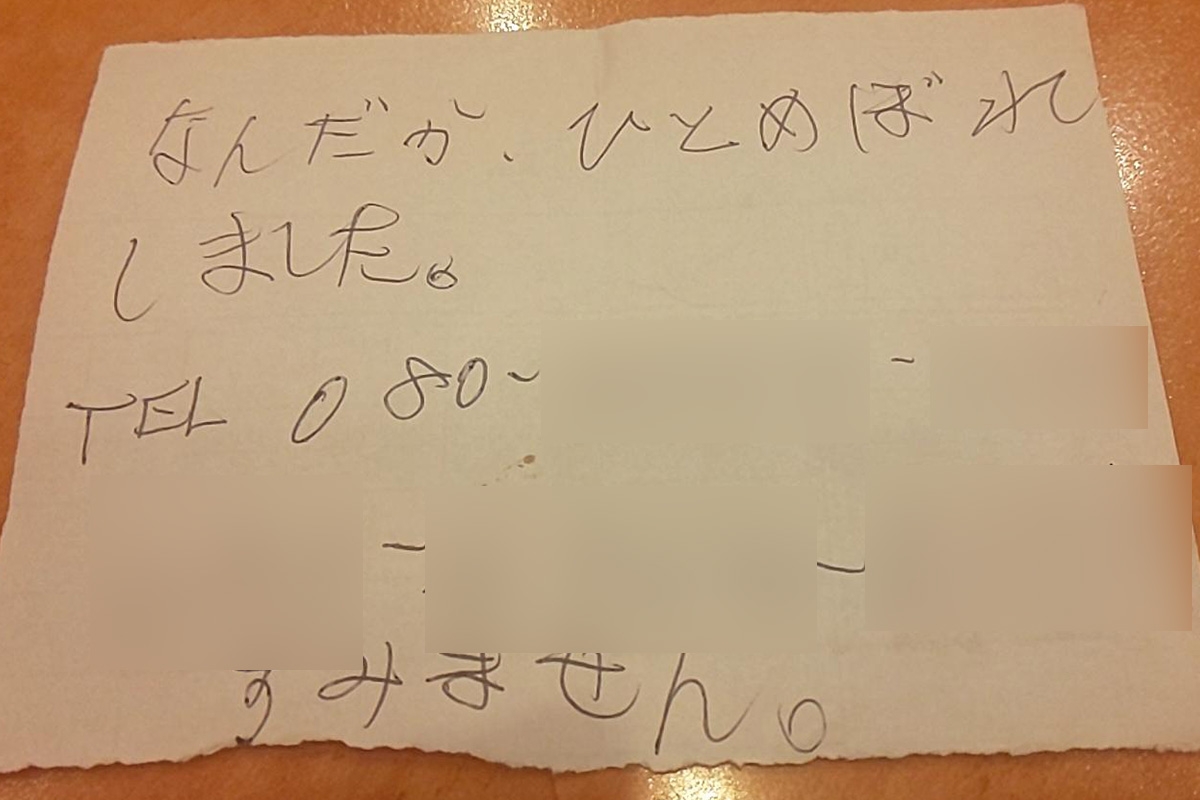 なんだか、ひとめぼれ
しました。
TEL 080-
すみません。